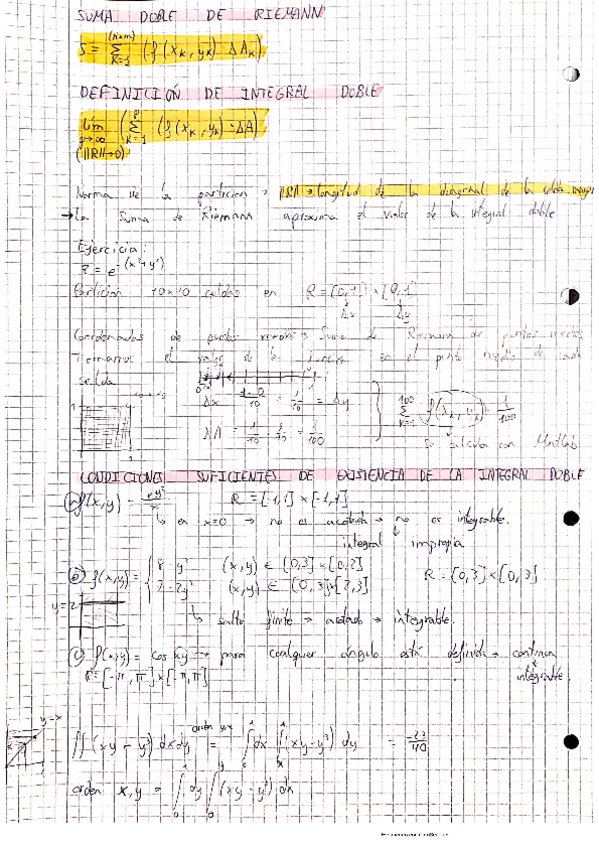 SUMA DOBLE DE RIEMANN
(n×m)
S = Σ (f(xₖ, yₖ) · ΔAₖ)
k=1
DEFINICIÓN DE INTEGRAL DOBLE
lím (Σ (f(xₖ, yₖ) · ΔA)
k=1
(||R||→0)
Norma de la partición → ||R|| → longitud de la diagonal de la celda mayor
→ La Suma de Riemann aproxima el valor de la integral doble
Ejercicio:
z = e^-(x²+y²)
Partición 10x10 celdas en R = [0,1] x [0,1]
Δx Δy
Coordenadas de puntos medios Suma de Riemann de puntos medios
Tomamos el valor de la función en el punto medio de cada
celda
Δx = 1-0/10 = 1/10 = Δy
ΔA = 1/10 · 1/10 = 1/100
100
Σ f(xₖ, yₖ) · 1/100
k=1
Se calcula con Matlab
CONDICIONES SUFICIENTES DE EXISTENCIA DE LA INTEGRAL DOBLE
a) f(x,y) = R = [-1,1] x [-1,1]
↳ en x=0 → no es acotada → no es integrable.
integral impropia
b) f(x,y) = (x,y) ∈ [0,3] x [0,2]
(x,y) ∈ [0,3] x [2,3]
R = [0,3] x [0,3]
y=2
↳ salto finito → acotado → integrable.
c) f(x,y) = cos xy → para cualquier ángulo está definida → continua
R = [-π, π] x [-π, π] integrable
∬ (xy - y³) dxdy = orden yx ∫ dx ∫ (xy-y³) dy = -23/40
orden x,y = ∫ dy ∫ (xy - y³) dx